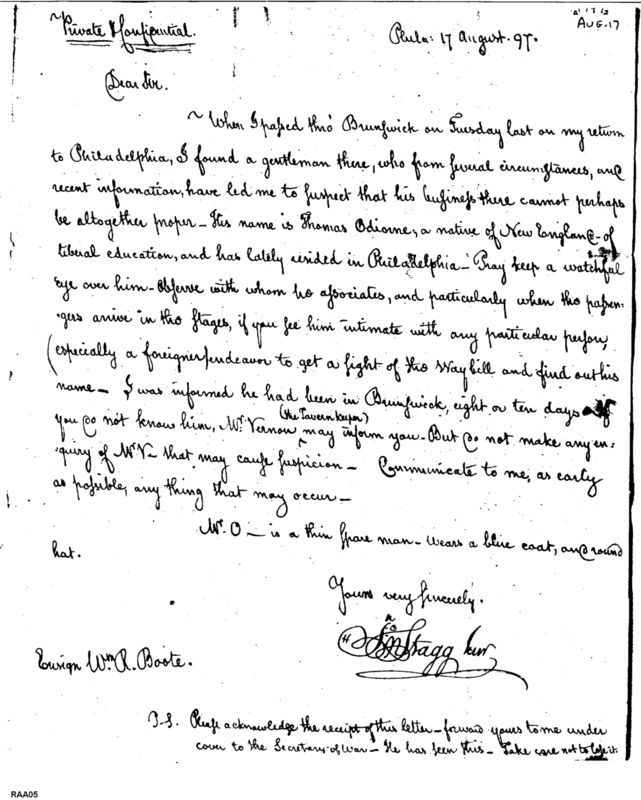 Private & Confidential.
Phila: 17 August. 97.
AUG. 17
Dear Sir.
~ When I passed thro' Brunswick on Tuesday last on my return
to Philadelphia, I found a gentleman there, who from several circumstances, and
recent information, have led me to suspect that his business there cannot perhaps
be altogether proper – His name is Thomas Odiorne, a native of New England – of
liberal education, and has lately resided in Philadelphia – Pray keep a watchful
Eye over him – Observe with whom he associates, and particularly when the passen-
gers arrive in the Stages, if you see him intimate with any particular person,
(especially a foreigner) endeavor to get a sight of the Way bill and find out his
name – I was informed he had been in Brunswick, eight or ten days If
(the Tavern keeper)
you do not know him, Mr. Vernon ^ may inform you – But do not make any en:
quiry of Mr. V – that may cause suspicion – Communicate to me, as early
as possible, any thing that may occur –
Mr. O – is a thin spare man – wears a blue coat, and round
hat.
Yours very sincerely.
Stagg Junr
Ensign Wm. R. Boote.
P.S. Please acknowledge the receipt of this letter – forward yours to me under
cover to the Secretary of War – He has seen this – Take care not to lose it.
RAA05